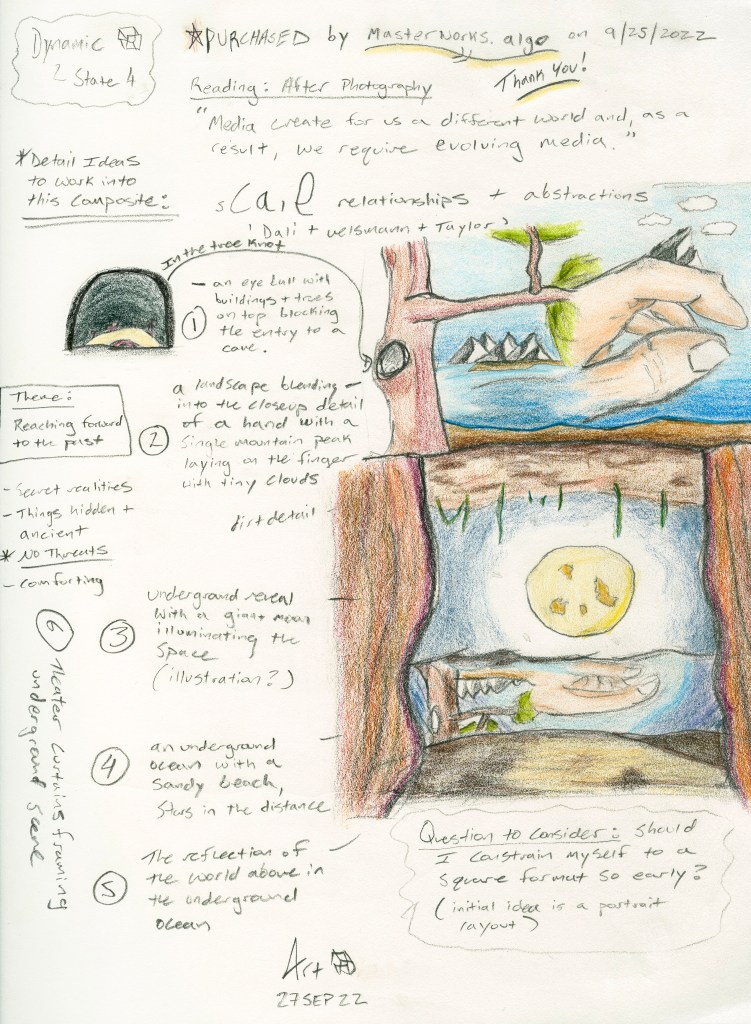 Dynamic
2 State 4
*PURCHASED by MasterWorks.algo on 9/25/2022
Thank You!
Reading: After Photography
"Media create for us a different world and, as a
result, we require evolving media."
*Detail Ideas
to work into
this composite:
scale relationships + abstractions
'Dali + Uelsmann + Taylor'
In the tree knot
- an eye ball with
buildings + trees
on top blocking
the entry to a
cave.
1
Theme:
Reaching forward
to the past
- Secret realities
- Things hidden +
ancient
* No Threats
- comforting
2
a landscape blending
into the closeup detail
of a hand with a
single mountain peak
laying on the finger
with tiny clouds
dirt detail
3
underground reveal
with a giant moon
illuminating the
space
(illustration?)
4
an underground
ocean with a
sandy beach,
stars in the distance
5
The reflection of
the world above in
the underground
ocean
6
Theater curtains framing
underground scene
Question to consider: should
I constrain myself to a
square format so early?
(initial idea is a portrait
layout)
Art
27 SEP 22